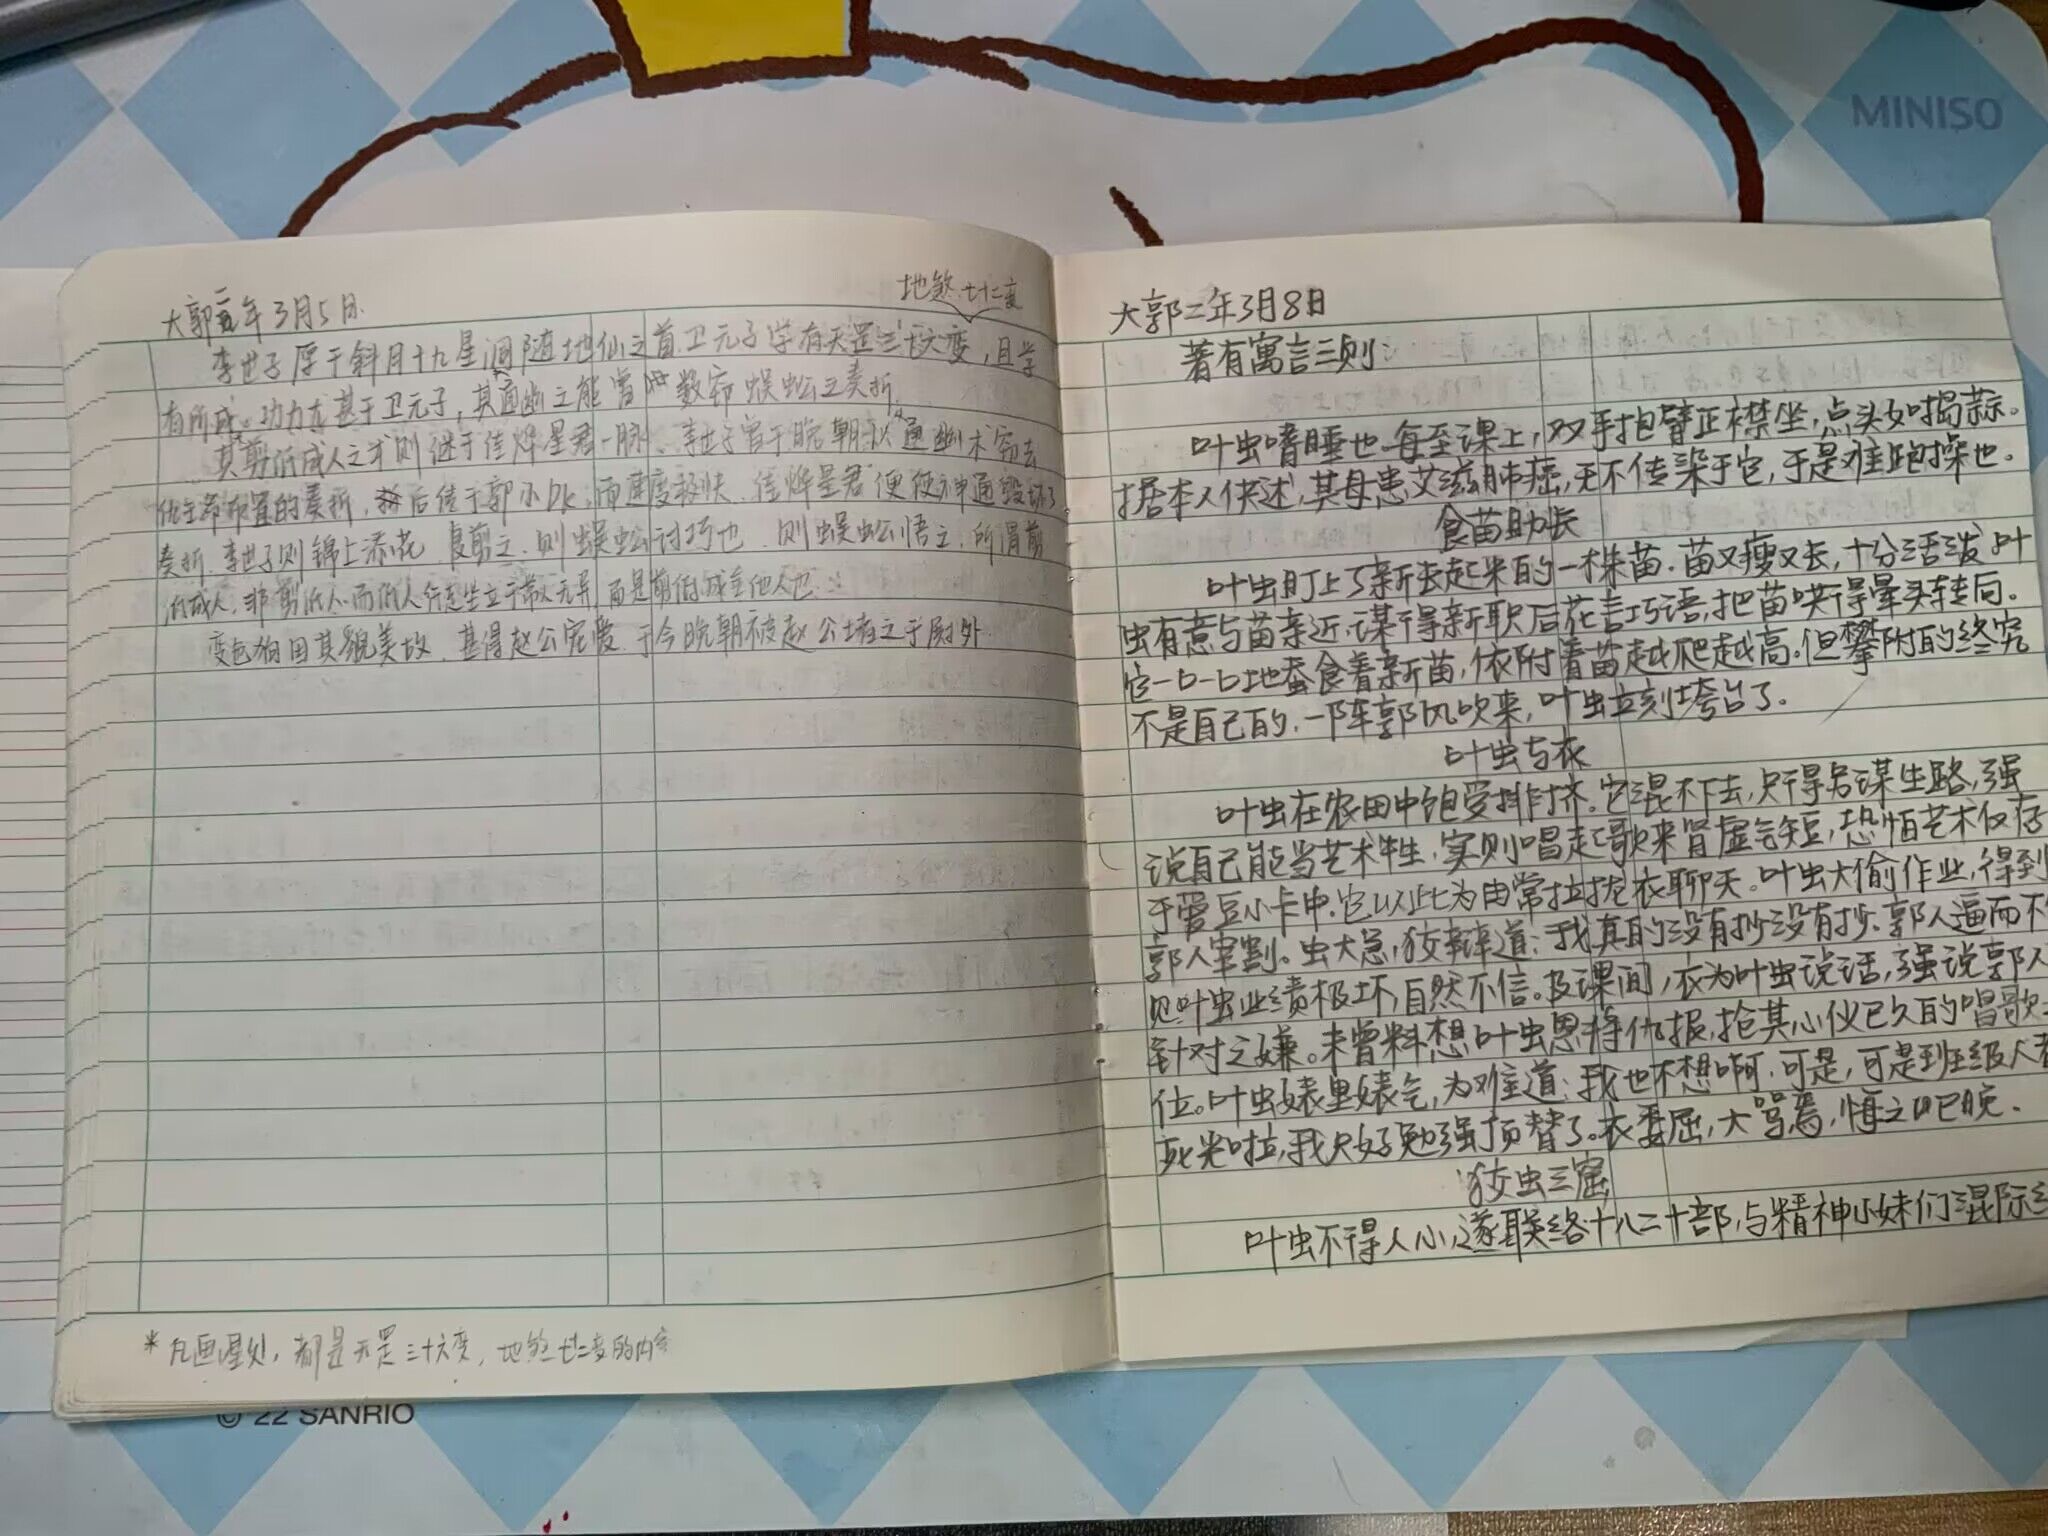 MINISO
地煞七十二变
大郭二年3月5日
李世子厚于斜月十九星洞随地仙之首卫元子学有天罡三十六变，且学
有所成。功力甚于卫元子，其通幽之能曾 数窃蜈蚣之奏折。
其剪纸成人之术则继于佳烨星君一脉。李世子曾于晚朝以通幽术窃去
奏折，后传于郭小Dk，而速度极快，佳烨星君便使神通毁坏了
奏折，李世子则锦上添花，复剪之，则蜈蚣讨巧也，则蜈蚣悟之，所谓剪
纸成人，非剪纸人而纸人行走坐立于常人无异，而是剪纸成全他人也
变色狗因其貌美故，甚得赵公宠爱，于今晚朝被赵公堵之于厕外
*凡画星处，都是天罡三十六变，地煞七十二变的内容
© 22 SANRIO
大郭二年3月8日
著有寓言三则：
叶虫嗜睡也。每至课上，双手抱臂正襟坐，点头如捣蒜。
据本人供述，其母患艾滋肺癌，无不传染于它，于是难跑操也。
食苗助长
叶虫盯上了新长起来的一株苗。苗又瘦又长，十分活泼。叶
虫有意与苗亲近，谋得新职后花言巧语，把苗哄得晕头转向。
它一口一口地蚕食着新苗，依附着苗越爬越高。但攀附的终究
不是自己的，一阵郭风吹来，叶虫立刻垮台了。
叶虫与衣
叶虫在农田中饱受排挤。它混不下去，只得另谋生路，强
说自己能当艺术生，实则唱起歌来肾虚气短，恐怕艺术仅存
于爱豆小卡中。它以此为由常拉拢衣聊天。叶虫大偷作业，得到
郭人宰割。虫大急，狡辩道：我真的没有抄没有抄。郭人逼而不
见叶虫业绩极坏，自然不信。及课间，衣为叶虫说话，强说郭人
针对之嫌。未曾料想叶虫恩将仇报，抢其心仪已久的唱歌
位。叶虫婊里婊气，为难道：我也不想啊，可是，可是班级人都
死光啦，我只好勉强顶替了。衣委屈，大骂焉，悔之已晚。
狡虫三窟
叶虫不得人心，遂联络十八二十部，与精神小妹们混际